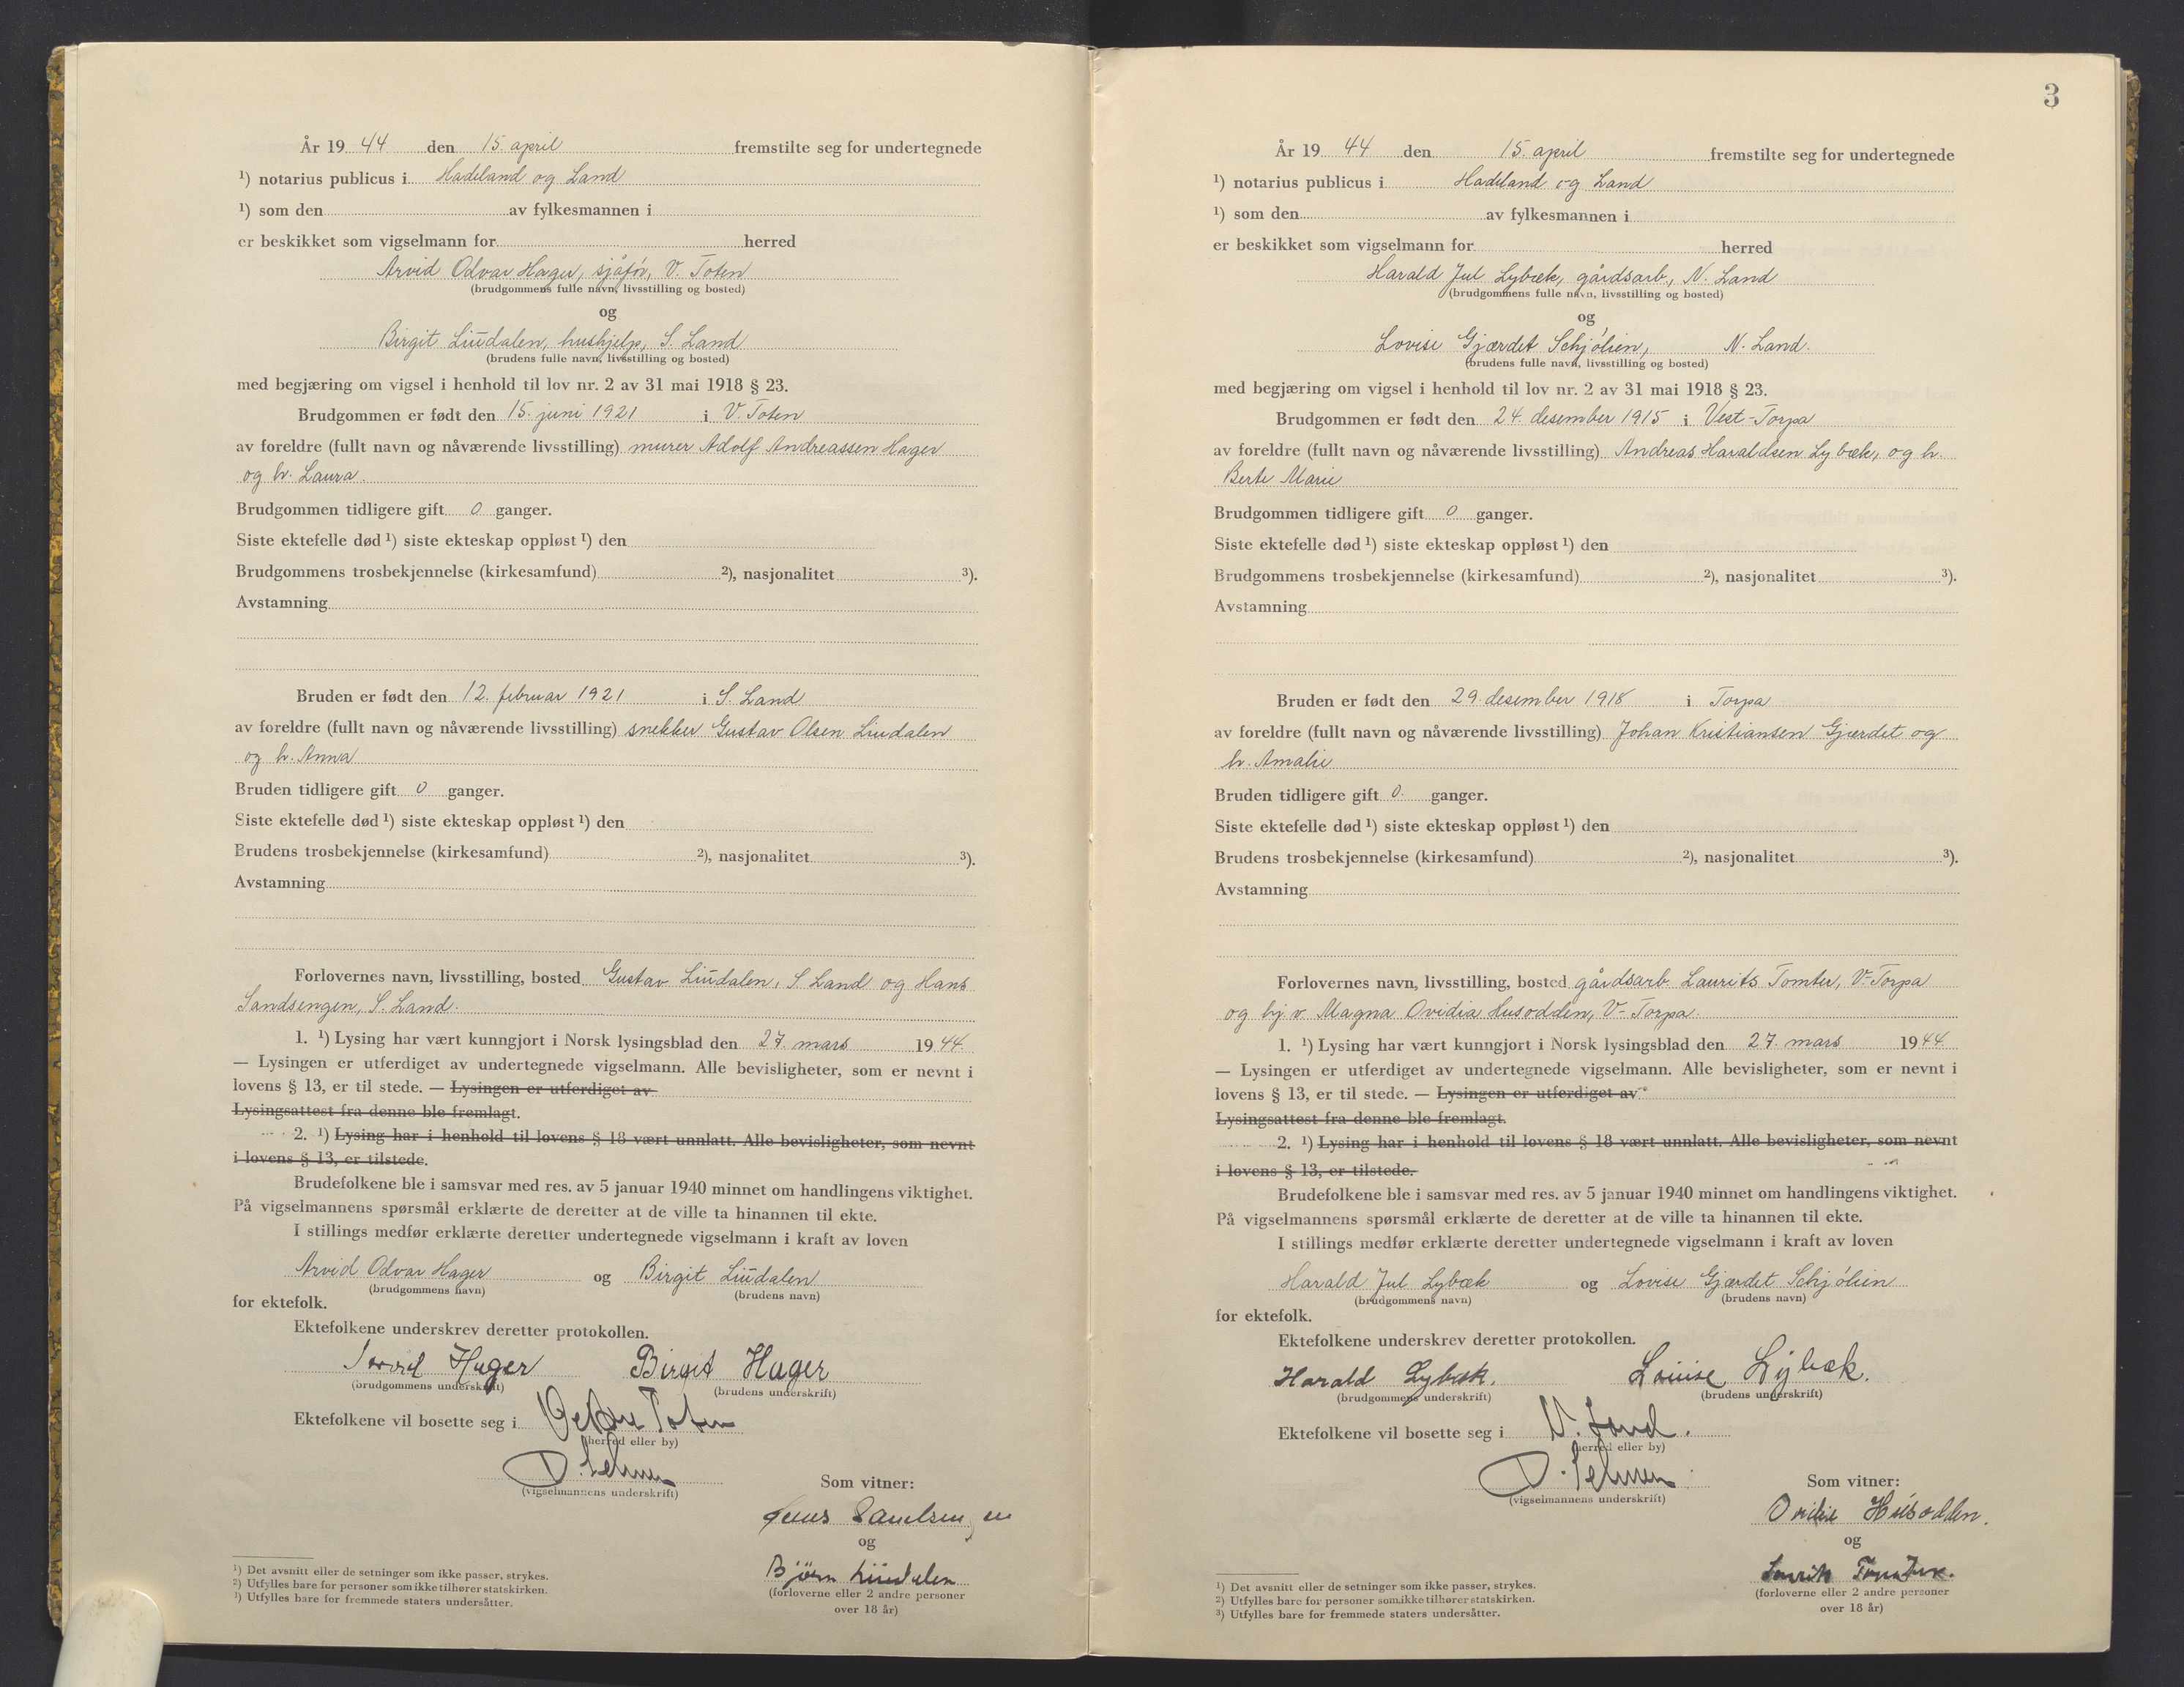 År 19 44 den 15. april fremstilte seg for undertegnede
¹) notarius publicus i Hadeland og Land
¹) som den av fylkesmannen i
er beskikket som vigselmann for herred
Arvid Odvar Hager, sjåfør, V. Toten
(brudgommens fulle navn, livsstilling og bosted)
og
Birgit Liudalen, hushjelp, S. Land
(brudens fulle navn, livsstilling og bosted)
med begjæring om vigsel i henhold til lov nr. 2 av 31 mai 1918 § 23.
Brudgommen er født den 15. juni 1921 i V. Toten
av foreldre (fullt navn og nåværende livsstilling) murer Adolf Andreassen Hager
og h. Laura.
Brudgommen tidligere gift 0 ganger.
Siste ektefelle død ¹) siste ekteskap oppløst ¹) den
Brudgommens trosbekjennelse (kirkesamfund) ²), nasjonalitet ³).
Avstamning
Bruden er født den 12. februar 1921 i S. Land
av foreldre (fullt navn og nåværende livsstilling) snekker Gustav Olsen Liudalen
og h. Anna
Bruden tidligere gift 0 ganger.
Siste ektefelle død ¹) siste ekteskap oppløst ¹) den
Brudens trosbekjennelse (kirkesamfund) ²), nasjonalitet ³).
Avstamning
Forlovernes navn, livsstilling, bosted Gustav Liudalen, S. Land og Hans
Sandsengen, S. Land.
1. ¹) Lysing har vært kunngjort i Norsk lysingsblad den 27. mars 1944.
— Lysingen er utferdiget av undertegnede vigselmann. Alle bevisligheter, som er nevnt i
lovens § 13, er til stede. — Lysingen er utferdiget av
Lysingsattest fra denne ble fremlagt.
2. ¹) Lysing har i henhold til lovens § 18 vært unnlatt. Alle bevisligheter, som nevnt
i lovens § 13, er tilstede.
Brudefolkene ble i samsvar med res. av 5 januar 1940 minnet om handlingens viktighet.
På vigselmannens spørsmål erklærte de deretter at de ville ta hinannen til ekte.
I stillings medfør erklærte deretter undertegnede vigselmann i kraft av loven
Arvid Odvar Hager og Birgit Liudalen
(brudgommens navn) (brudens navn)
for ektefolk.
Ektefolkene underskrev deretter protokollen.
Arvid Hager Birgit Hager
(brudgommens underskrift) (brudens underskrift)
Ektefolkene vil bosette seg i Vestre Toten
(herred eller by)
(vigselmannens underskrift)
Som vitner:
og
Bjørn Liudalen
(forloverne eller 2 andre personer
over 18 år)
¹) Det avsnitt eller de setninger som ikke passer, strykes.
²) Utfylles bare for personer som ikke tilhører statskirken.
³) Utfylles bare for fremmede staters undersåtter.
3
År 19 44 den 15. april fremstilte seg for undertegnede
¹) notarius publicus i Hadeland og Land
¹) som den av fylkesmannen i
er beskikket som vigselmann for herred
Harald Jul Lybæk, gårdsarb., N. Land
(brudgommens fulle navn, livsstilling og bosted)
og
Lovise Gjærdet Schjølien, N. Land.
(brudens fulle navn, livsstilling og bosted)
med begjæring om vigsel i henhold til lov nr. 2 av 31 mai 1918 § 23.
Brudgommen er født den 24. desember 1915 i Vest-Torpa
av foreldre (fullt navn og nåværende livsstilling) Andreas Haraldsen Lybæk, og h.
Berte Marie
Brudgommen tidligere gift 0 ganger.
Siste ektefelle død ¹) siste ekteskap oppløst ¹) den
Brudgommens trosbekjennelse (kirkesamfund) ²), nasjonalitet ³).
Avstamning
Bruden er født den 29. desember 1918 i Torpa
av foreldre (fullt navn og nåværende livsstilling) Johan Kristiansen Gjærdet og
h. Amalie
Bruden tidligere gift 0. ganger.
Siste ektefelle død ¹) siste ekteskap oppløst ¹) den
Brudens trosbekjennelse (kirkesamfund) ²), nasjonalitet ³).
Avstamning
Forlovernes navn, livsstilling, bosted gårdsarb. Laurits Tomter, V-Torpa
og hj. v. Magna Ovidia Husodden, V-Torpa.
1. ¹) Lysing har vært kunngjort i Norsk lysingsblad den 27. mars 1944
— Lysingen er utferdiget av undertegnede vigselmann. Alle bevisligheter, som er nevnt i
lovens § 13, er til stede. — Lysingen er utferdiget av
Lysingsattest fra denne ble fremlagt.
2. ¹) Lysing har i henhold til lovens § 18 vært unnlatt. Alle bevisligheter, som nevnt
i lovens § 13, er tilstede.
Brudefolkene ble i samsvar med res. av 5 januar 1940 minnet om handlingens viktighet.
På vigselmannens spørsmål erklærte de deretter at de ville ta hinannen til ekte.
I stillings medfør erklærte deretter undertegnede vigselmann i kraft av loven
Harald Jul Lybæk og Lovise Gjærdet Schjølien
(brudgommens navn) (brudens navn)
for ektefolk.
Ektefolkene underskrev deretter protokollen.
Harald Lybæk. Louise Lybæk.
(brudgommens underskrift) (brudens underskrift)
Ektefolkene vil bosette seg i N. Land.
(herred eller by)
(vigselmannens underskrift)
Som vitner:
Ovidia Husodden.
og
Laurits Tomter.
(forloverne eller 2 andre personer
over 18 år)
¹) Det avsnitt eller de setninger som ikke passer, strykes.
²) Utfylles bare for personer som ikke tilhører statskirken.
³) Utfylles bare for fremmede staters undersåtter.